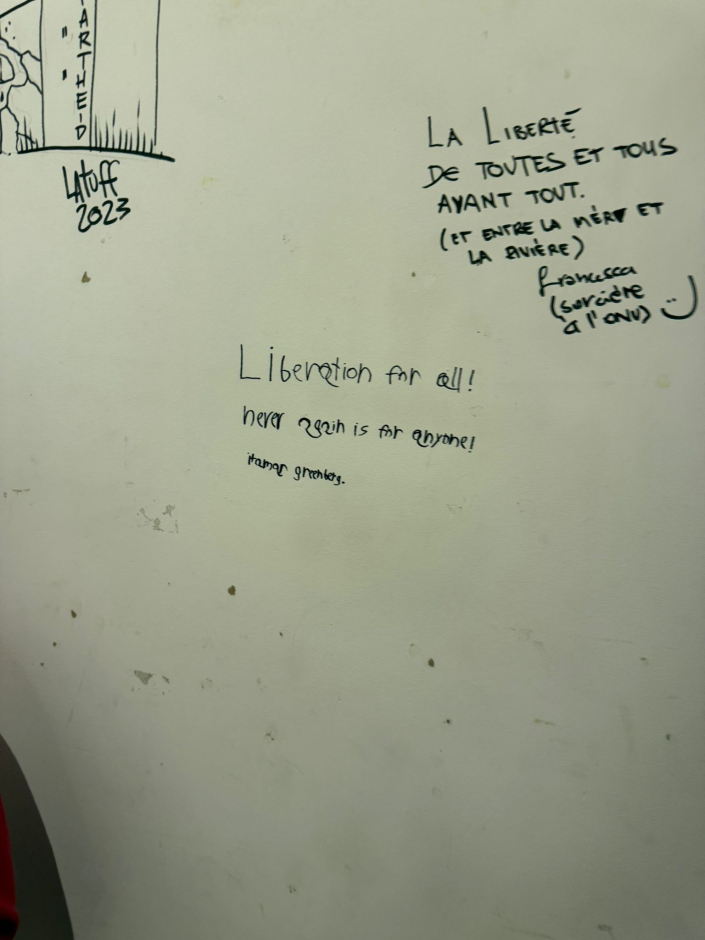 ARTHEID
LATUFF
2023
LA LIBERTÉ
DE TOUTES ET TOUS
AVANT TOUT.
(ET ENTRE LA MÉR ET
LA RIVIÈRE)
francesca
(sorcière
à l'ONU) :)
Liberation for all!
never again is for anyone!
itamar greenberg.